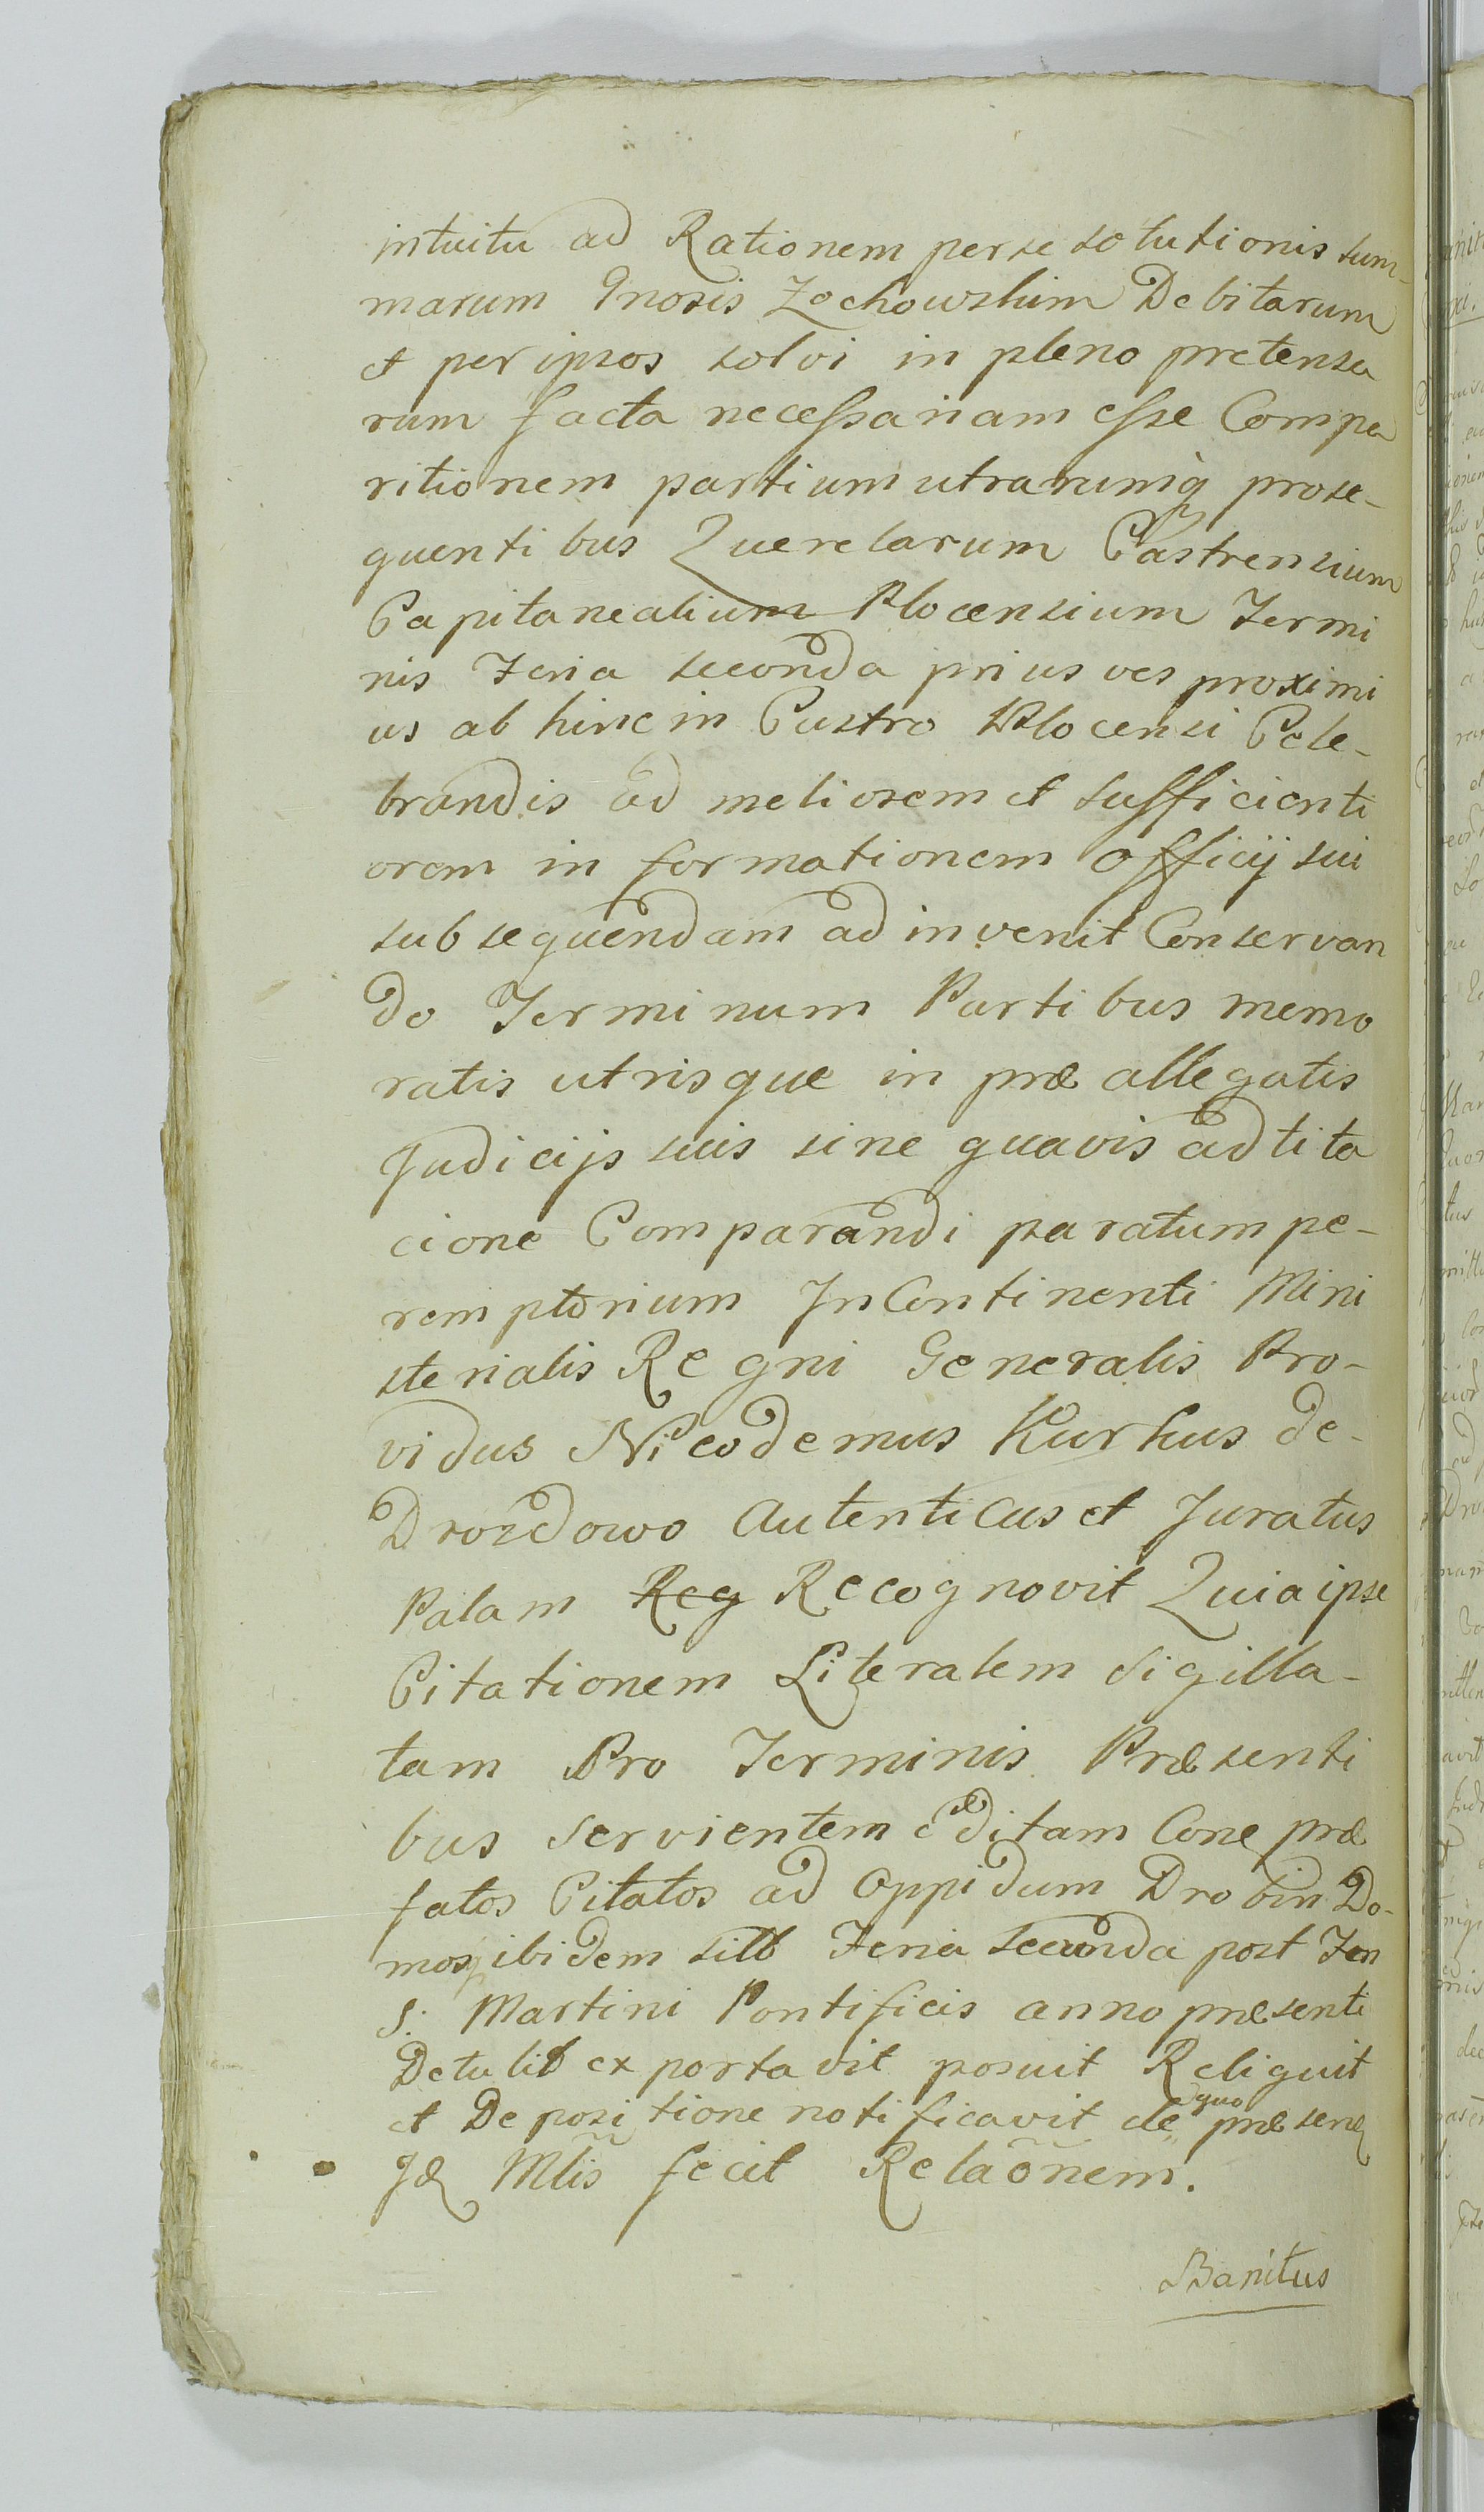 intuitu ad Rationem perse solutionis sum-
marum Gnosis Zochowskim Debitarum
et per ipsos solvi in pleno pretensa
rum facta necessariam esse Compa
ritionem partium utrarumq prose-
quentibus Querelarum Castrensium
Capitanealium Plocensium Termi
nis Feria secunda prius ves proximi
us ab hinc in Castro Plocensi Cele-
brandis ad meliorem et sufficienti
orem informationem officij sui
subsequendam adinvenit Conservan
do Terminum Partibus memo
ratis utrisque in præallegatis
Judicijs suis sine quavis adtita
cione Comparandi paratum pe-
remptorium InContinenti Mini
sterialis Regni Generalis Pro-
vidus Nicodemus Kurkus de-
Drozdowo Autenticus et Juratus
Palam Reg Recognovit Quia ipse
Citationem Literalem sigilla-
tam Pro Terminis Præsenti
bus servientem editam Cone præ
fatos Citatos ad oppidum Drobin Do-
mosq ibidem sitt Feria secunda post Fen
S. Martini Pontificis anno præsenti
Detulit exportavit posuit Reliquit
et Depositione notificavit de quo præsen
Mlis fecit Relaõnem.
Banitus